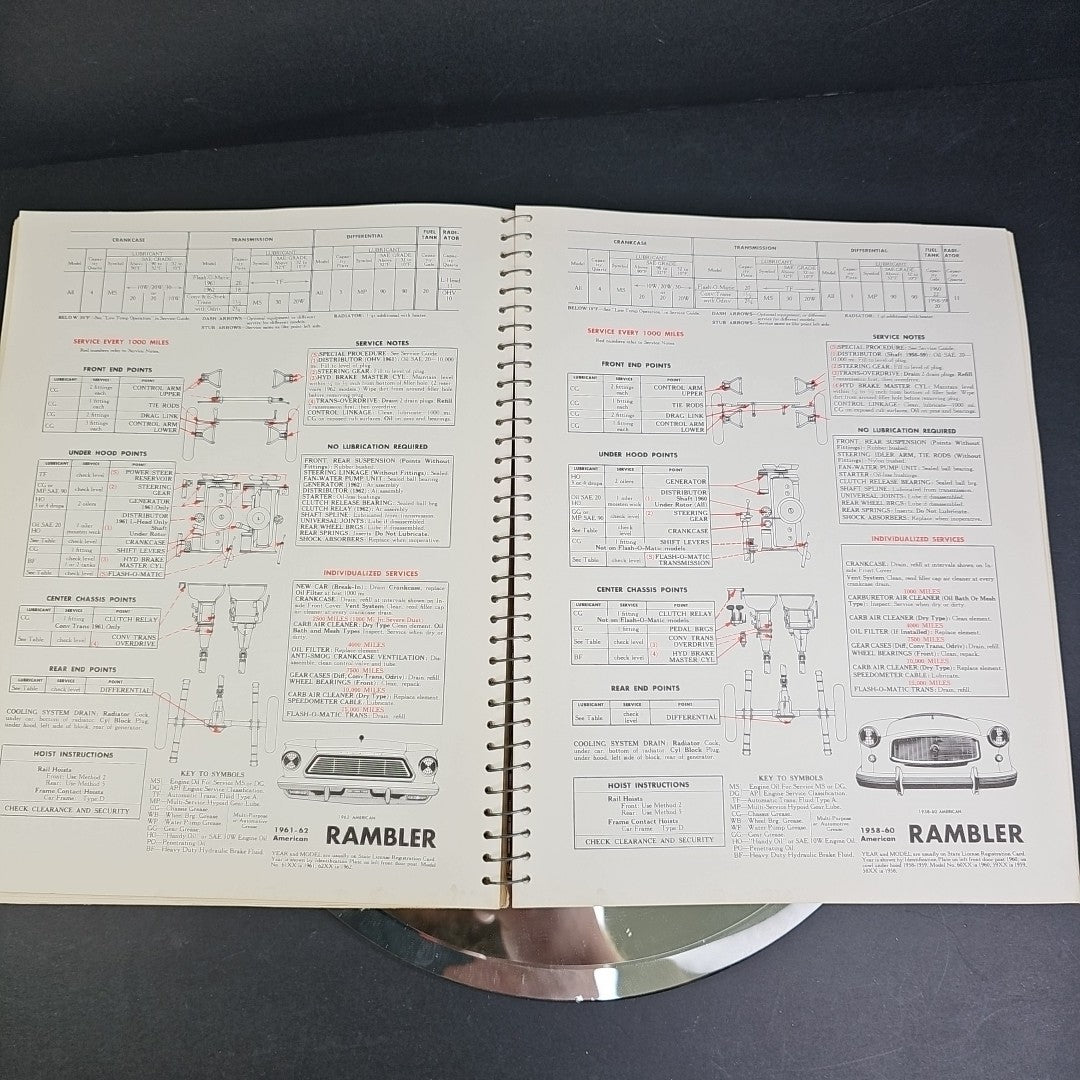 CRANKCASE TRANSMISSION DIFFERENTIAL FUEL TANK RADI-ATOR
LUBRICANT LUBRICANT LUBRICANT
Model Capacity Quarts Symbol SAE GRADE Model Capacity Pints Symbol SAE GRADE Model Capacity Pints Symbol SAE GRADE
All 4 MS Flash-O-Matic 1961 TF All 3 MP 90 90 90 20
with Odrv MS 30 20W
BELOW
DASH ARROWS—Optional equipment, or different service for different models.
STUB ARROWS—Service same as like point left side.
RADIATOR: 1 qt additional with heater.
SERVICE EVERY 1000 MILES
Red numbers refer to Service Notes.
FRONT END POINTS
LUBRICANT SERVICE POINT
CG 2 fittings each CONTROL ARM UPPER
CG 1 fitting each TIE RODS
CG 2 fittings DRAG LINK
CG 3 fittings each CONTROL ARM LOWER
UNDER HOOD POINTS
LUBRICANT SERVICE POINT
TF check level (5) POWER STEER RESERVOIR
CG or MP SAE 90 check level (2) STEERING GEAR
HO 3 or 4 drops 2 oilers GENERATOR 1961 Only
Oil SAE 20 HO 1 oiler moisten wick (1) DISTRIBUTOR 1961 L-Head Only Shaft Under Rotor
See Table check level CRANKCASE
CG 1 fitting SHIFT LEVERS
BF check level 1 or 2 tanks (3) HYD BRAKE MASTER CYL
See Table check level (5) FLASH-O-MATIC
CENTER CHASSIS POINTS
LUBRICANT SERVICE POINT
CG 1 fitting CLUTCH RELAY
Conv Trans 1961 Only
See Table check level (4) CONV TRANS OVERDRIVE
REAR END POINTS
LUBRICANT SERVICE POINT
See Table check level DIFFERENTIAL
COOLING SYSTEM DRAIN: Radiator Cock, under car, bottom of radiator. Cyl Block Plug, under hood, left side of block, rear of generator.
HOIST INSTRUCTIONS
Rail Hoists
Front: Use Method 2
Rear: Use Method 3
Frame Contact Hoists
Car Frame Type D
CHECK CLEARANCE AND SECURITY
SERVICE NOTES
(5) SPECIAL PROCEDURE: See Service Guide.
(1) DISTRIBUTOR (OHV-1961): Oil SAE 20—10,000 mi. Fill to level of plug.
(2) STEERING GEAR: Fill to level of plug.
(3) HYD BRAKE MASTER CYL: Maintain level
before removing plug.
(4) TRANS-OVERDRIVE: Drain 2 drain plugs. Refill Transmission first, then overdrive.
CONTROL LINKAGE: Clean, lubricate—1000 mi.
NO LUBRICATION REQUIRED
FRONT, REAR SUSPENSION (Points Without Fittings): Rubber bushed.
STEERING LINKAGE (Without Fittings): Sealed
FAN-WATER PUMP UNIT: Sealed ball bearing.
GENERATOR (1962): At assembly.
DISTRIBUTOR (1962): At assembly.
STARTER: Oil-less bushings.
CLUTCH RELEASE BEARING: Sealed ball brg.
CLUTCH RELAY (1962): At assembly.
SHAFT SPLINE: Lubricated from transmission.
UNIVERSAL JOINTS: Lube if disassembled.
REAR WHEEL BRGS: Lube if disassembled.
REAR SPRINGS: Inserts. Do Not Lubricate.
SHOCK ABSORBERS: Replace when inoperative.
INDIVIDUALIZED SERVICES
NEW CAR (Break-In): Drain Crankcase, replace Oil Filter at first 1000 mi.
CRANKCASE: Drain, refill at intervals shown on Inside Front Cover. Vent System: Clean, reoil filler cap air cleaner at every crankcase drain.
2500 MILES (1000 Mi. In Severe Dust)
CARB AIR CLEANER: (Dry Type) Clean element. Oil Bath and Mesh Types: Inspect. Service when dry or dirty.
4000 MILES
OIL FILTER: Replace element.
ANTI-SMOG CRANKCASE VENTILATION: Disassemble, clean control valve and tube.
7500 MILES
GEAR CASES (Diff, Conv Trans, Odriv): Drain, refill.
WHEEL BEARINGS (Front): Clean, repack.
10,000 MILES
CARB AIR CLEANER (Dry Type): Replace element.
SPEEDOMETER CABLE: Lubricate.
15,000 MILES
FLASH-O-MATIC TRANS: Drain, refill.
KEY TO SYMBOLS
MS—Engine Oil For Service MS or DG.
DG—API Engine Service Classification.
TF—Automatic Trans. Fluid Type A.
MP—Multi-Service Hypoid Gear Lube.
CG—Chassis Grease.
WB—Wheel Brg. Grease.
WP—Water Pump Grease.
Multi-Purpose or Automotive Grease
GG—Gear Grease.
HO—"Handy Oil" or SAE 10W Engine Oil.
PO—Penetrating Oil.
BF—Heavy Duty Hydraulic Brake Fluid.
1962 AMERICAN
1961-62 American RAMBLER
YEAR and MODEL are usually on State License Registration Card.
CRANKCASE TRANSMISSION DIFFERENTIAL FUEL TANK RADI-ATOR
LUBRICANT LUBRICANT LUBRICANT
All 4 MS Flash-O-Matic 20 TF All 3 MP 90 90 11
Conv Trans with Odriv MS 30 20W
BELOW
DASH ARROWS—Optional equipment, or different service for different models.
STUB ARROWS—Service same as like point left side.
RADIATOR: 1 qt additional with heater.
SERVICE EVERY 1000 MILES
Red numbers refer to Service Notes.
FRONT END POINTS
LUBRICANT SERVICE POINT
CG 2 fittings each CONTROL ARM UPPER
CG 1 fitting each TIE RODS
CG 2 fittings DRAG LINK
CG 3 fittings each CONTROL ARM LOWER
UNDER HOOD POINTS
LUBRICANT SERVICE POINT
HO 3 or 4 drops 2 oilers GENERATOR
Oil SAE 20 HO 1 oiler moisten wick (1) DISTRIBUTOR Shaft 1960 Under Rotor (All)
CG or MP SAE 90 check level (2) STEERING GEAR
See Table check level CRANKCASE
CG 1 fitting SHIFT LEVERS
Not on Flash-O-Matic models
See Table check level (5) FLASH-O-MATIC TRANSMISSION
CENTER CHASSIS POINTS
LUBRICANT SERVICE POINT
CG 1 fitting CLUTCH RELAY
Not on Flash-O-Matic models
CG 1 fitting PEDAL BRGS
See Table check level (3) CONV TRANS OVERDRIVE
BF check level (4) HYD BRAKE MASTER CYL
REAR END POINTS
LUBRICANT SERVICE POINT
See Table check level DIFFERENTIAL
COOLING SYSTEM DRAIN: Radiator Cock, under car, bottom of radiator. Cyl Block Plug, under hood, left side of block, rear of generator.
HOIST INSTRUCTIONS
Rail Hoists
Front: Use Method 2
Rear: Use Method 3
Frame Contact Hoists
Car Frame Type D
CHECK CLEARANCE AND SECURITY
SERVICE NOTES
(5) SPECIAL PROCEDURE: See Service Guide.
(1) DISTRIBUTOR (Shaft 1958-59): Oil SAE 20—
(2) STEERING GEAR: Fill to level of plug.
(3) TRANS-OVERDRIVE: Drain 2 drain plugs. Refill Transmission first, then overdrive.
(4) HYD BRAKE MASTER CYL: Maintain level
CONTROL LINKAGE: Clean, lubricate—1000 mi.
CG on exposed cull surfaces, Oil on pins and bearings.
NO LUBRICATION REQUIRED
FRONT, REAR SUSPENSION (Points Without Fittings): Rubber bushed.
STEERING IDLER ARM, TIE RODS (Without Fittings): Nylon bushed.
FAN-WATER PUMP UNIT: Sealed ball bearing.
STARTER: Oil-less bushings.
CLUTCH RELEASE BEARING: Sealed ball brg.
SHAFT SPLINE: Lubricated from transmission.
UNIVERSAL JOINTS: Lube if disassembled.
REAR WHEEL BRGS: Lube if disassembled.
REAR SPRINGS: Inserts. Do Not Lubricate.
SHOCK ABSORBERS: Replace when inoperative.
INDIVIDUALIZED SERVICES
CRANKCASE: Drain, refill at intervals shown on Inside Front Cover.
Vent System: Clean, reoil filler cap air cleaner at every crankcase drain.
1000 MILES
CARBURETOR AIR CLEANER (Oil Bath Or Mesh Type): Inspect. Service when dry or dirty.
2000 MILES
CARB AIR CLEANER: (Dry Type) Clean element.
4000 MILES
OIL FILTER (If Installed): Replace element.
7500 MILES
GEAR CASES (Diff, Conv Trans, Odriv): Drain, refill.
WHEEL BEARINGS (Front): Clean, repack.
10,000 MILES
CARB AIR CLEANER (Dry Type): Replace element.
SPEEDOMETER CABLE: Lubricate.
15,000 MILES
FLASH-O-MATIC TRANS: Drain, refill.
KEY TO SYMBOLS
MS—Engine Oil For Service MS or DG.
DG—API Engine Service Classification.
TF—Automatic Trans. Fluid Type A.
MP—Multi-Service Hypoid Gear Lube.
CG—Chassis Grease.
WB—Wheel Brg. Grease.
WP—Water Pump Grease.
Multi-Purpose or Automotive Grease
GG—Gear Grease.
HO—"Handy Oil" or SAE 10W Engine Oil.
PO—Penetrating Oil.
BF—Heavy Duty Hydraulic Brake Fluid.
1958-60 AMERICAN
1958-60 American RAMBLER
YEAR and MODEL are usually on State License Registration Card.